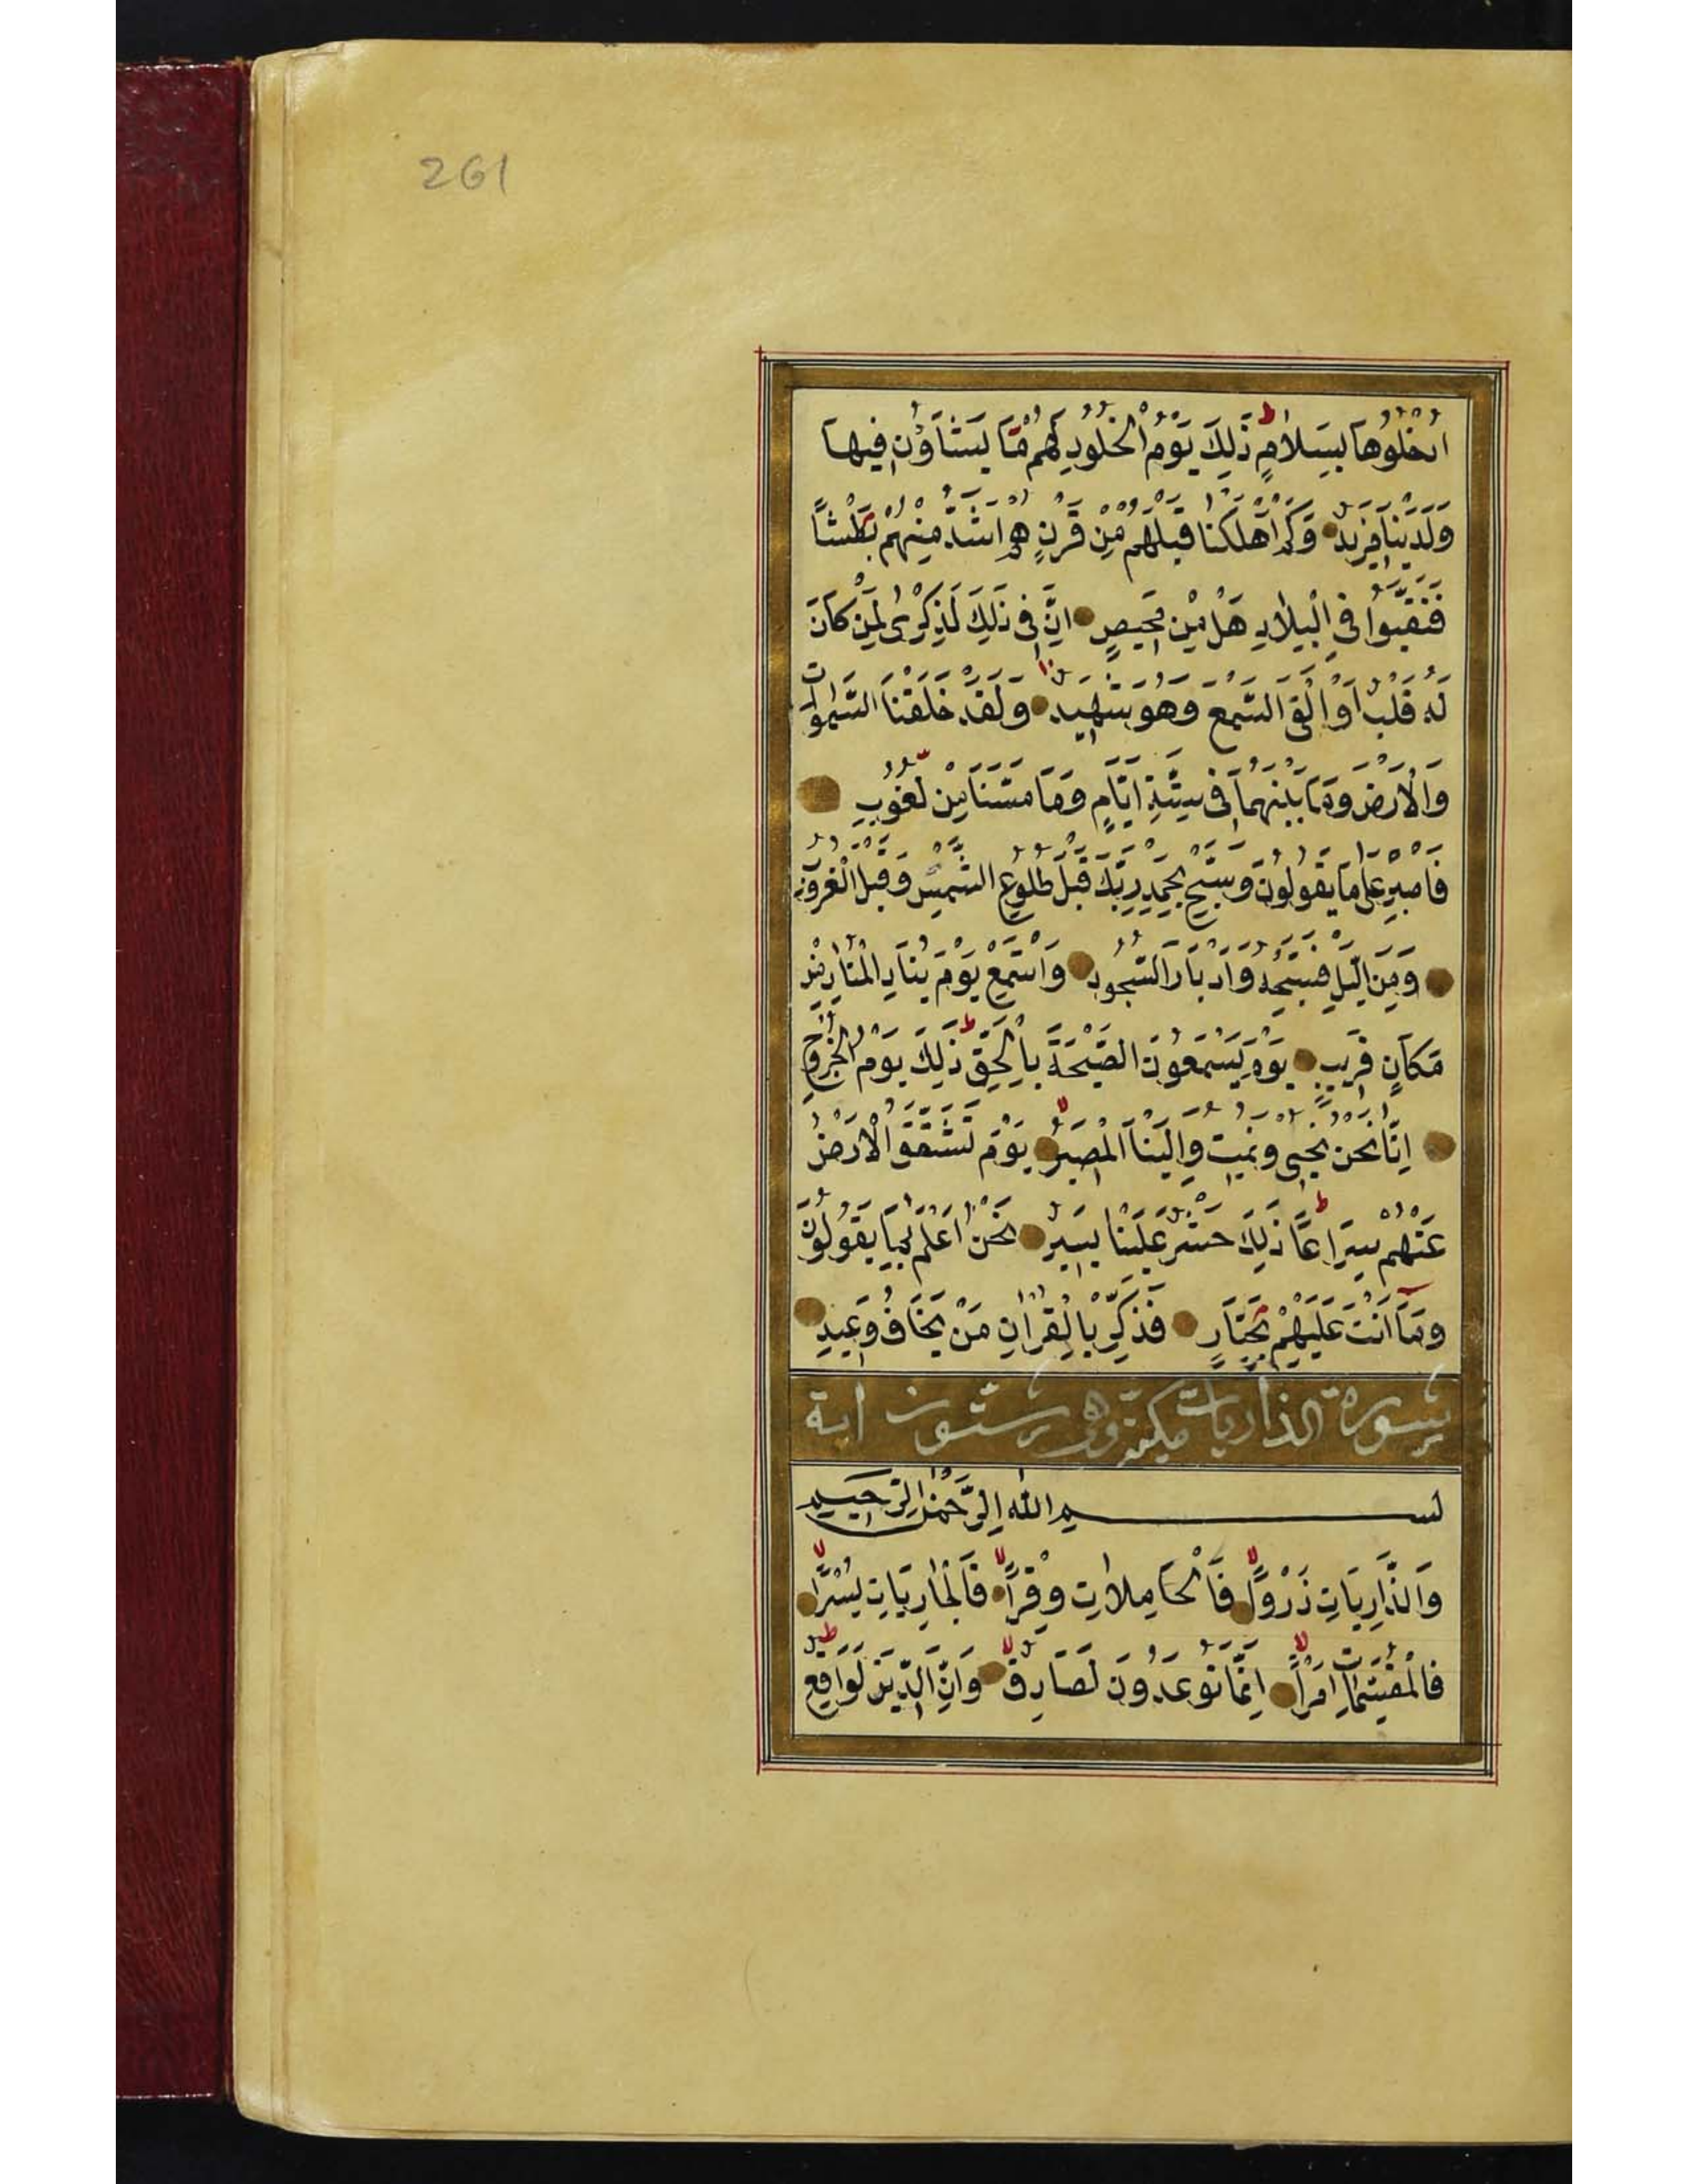 261
ادْخُلُوهَا بِسَلَامٍ ط ذَلِكَ يَوْمُ الْخُلُودِ لَهُمْ مَّا يَشَآؤُنَ فِيهَا
وَلَدَيْنَا مَزِيدٌ وَكَمْ اَهْلَكْنَا قَبْلَهُمْ مِنْ قَرْنٍ هُمْ اَشَدُّ مِنْهُمْ بَطْشًا
فَنَقَّبُوا فِي الْبِلَادِ هَلْ مِنْ مَحِيصٍ اِنَّ فِى ذَلِكَ لَذِكْرٰى لِمَنْ كَانَ
لَهُ قَلْبٌ اَوْ اَلْقَى السَّمْعَ وَهُوَ شَهِيدٌ وَلَقَدْ خَلَقْنَا السَّمٰوَاتِ
وَالْاَرْضَ وَمَا بَيْنَهُمَا فِى سِتَّةِ اَيَّامٍ وَمَا مَسَّنَا مِنْ لُغُوبٍ
فَاصْبِرْ عَلٰى مَا يَقُولُونَ وَسَبِّحْ بِحَمْدِ رَبِّكَ قَبْلَ طُلُوعِ الشَّمْسِ وَقَبْلَ الْغُرُوبِ
وَمِنَ الَّيْلِ فَسَبِّحْهُ وَاَدْبَارَ السُّجُودِ وَاسْتَمِعْ يَوْمَ يُنَادِ الْمُنَادِ مِنْ
مَكَانٍ قَرِيبٍ يَوْمَ يَسْمَعُونَ الصَّيْحَةَ بِالْحَقِّ ط ذَلِكَ يَوْمُ الْخُرُوجِ
اِنَّا نَحْنُ نُحْيِى وَنُمِيتُ وَاِلَيْنَا الْمَصِيرُ لا يَوْمَ تَشَقَّقُ الْاَرْضُ
عَنْهُمْ سِرَاعًا ط ذَلِكَ حَشْرٌ عَلَيْنَا يَسِيرٌ نَحْنُ اَعْلَمُ بِمَا يَقُولُونَ
وَمَا اَنْتَ عَلَيْهِمْ بِجَبَّارٍ فَذَكِّرْ بِالْقُرْاٰنِ مَنْ يَخَافُ وَعِيدِ
سورة الذاريات مكية وهى ستون اية
بسم الله الرَّحْمٰنِ الرَّحِيم
وَالذَّارِيَاتِ ذَرْوًا لا فَالْحَامِلَاتِ وِقْرًا لا فَالْجَارِيَاتِ يُسْرًا لا
فَالْمُقَسِّمَاتِ اَمْرًا لا اِنَّمَا تُوعَدُونَ لَصَادِقٌ لا وَاِنَّ الدِّينَ لَوَاقِعٌ ط